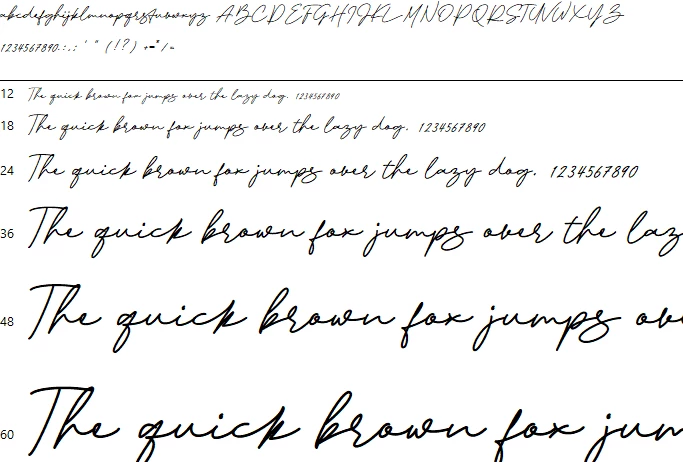 abcdefghijklmnopqrstuvwxyz ABCDEFGHIJKLMNOPQRSTUVWXYZ
1234567890.:,; ' " (!?) +-*/=
12 The quick brown fox jumps over the lazy dog. 1234567890
18 The quick brown fox jumps over the lazy dog. 1234567890
24 The quick brown fox jumps over the lazy dog. 1234567890
36 The quick brown fox jumps over the laz
48 The quick brown fox jumps ov
60 The quick brown fox jum